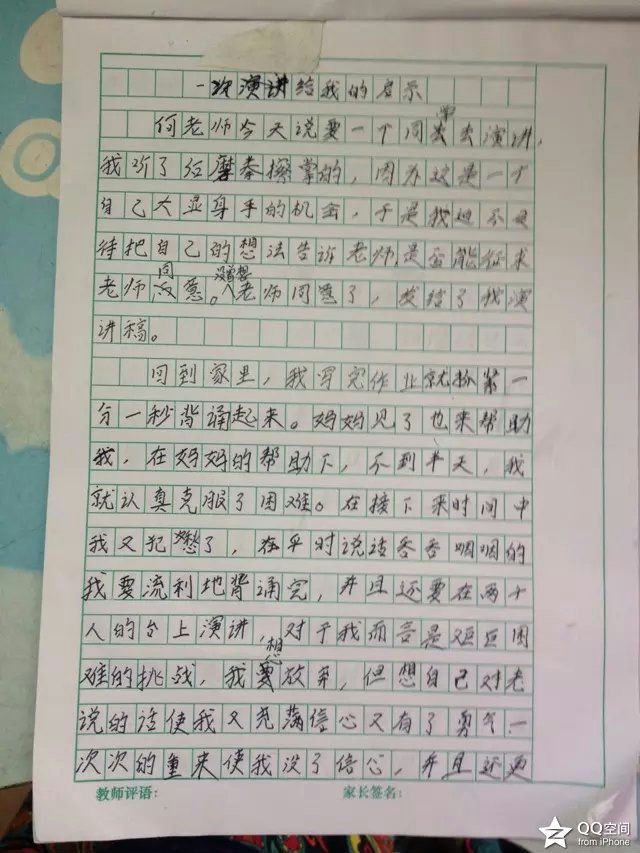 一次演讲给我的启示
何老师今天说要一个同学去演讲，
我听了后摩拳擦掌的，因为这是一个
自己大显身手的机会，于是我迫不及
待把自己的想法告诉老师，是否能征求
老师同意。没曾想老师同意了，发给了我演
讲稿。
回到家里，我写完作业就抓紧一
分一秒背诵起来。妈妈见了也来帮助
我，在妈妈的帮助下，不到半天，我
就认真克服了困难。在接下来时间中
我又犯愁了，在平时说话吞吞咽咽的
我要流利地背诵完，并且还要在两千
人的台上演讲，对于我而言是
难的挑战，我想放弃，但想自己对老
说的话使我又充满信心又有了勇气一
次次的重来使我没了信心，并且还要
教师评语：
家长签名：
QQ空间
from iPhone